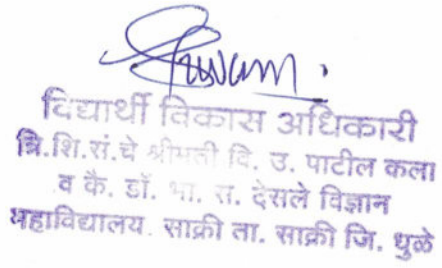 विद्यार्थी विकास अधिकारी
त्रि.शि.सं.चे श्रीमती वि. उ. पाटील कला
व कै. डॉ. भा. स. देसले विज्ञान
महाविद्यालय. साक्री ता. साक्री जि. धुळे